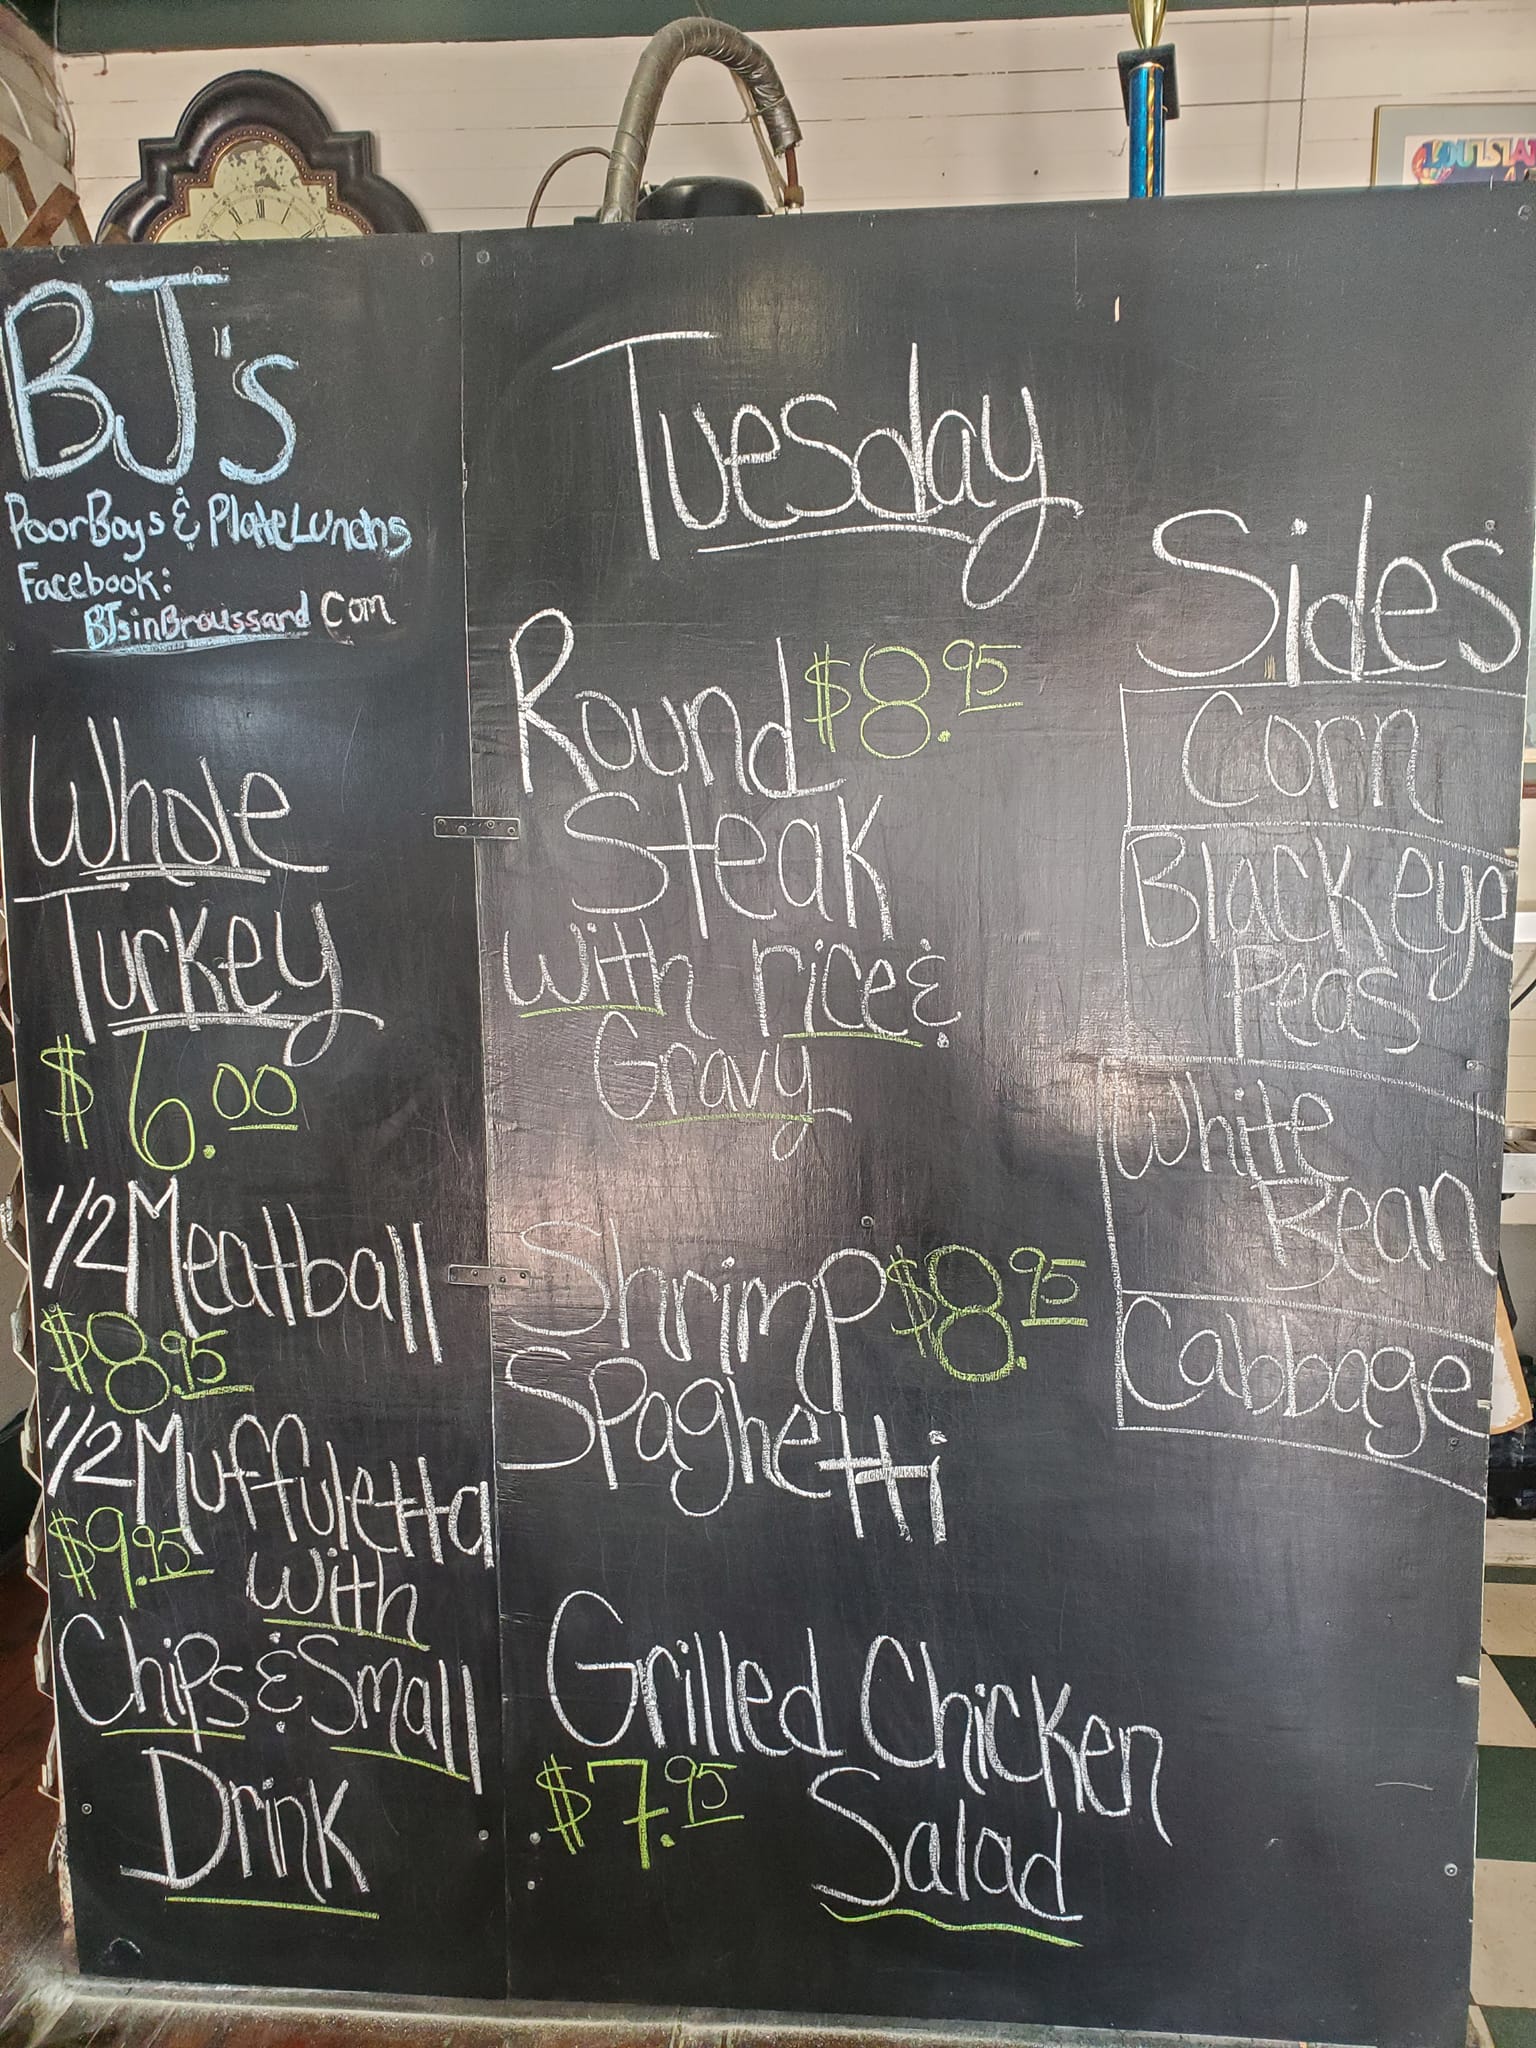 BJ's
PoorBoys & PlateLunchs
Facebook:
BJsinBroussard Com
Whole
Turkey
$6.00
1/2 Meatball
$8.95
1/2 Muffuletta
$9.95 with
Chips & Small
Drink
Tuesday
Round $8.95
Steak
with rice &
Gravy
Shrimp $8.95
Spaghetti
Grilled Chicken
$7.95 Salad
Sides
Corn
Blackeye
Peas
White
Bean
Cabbage